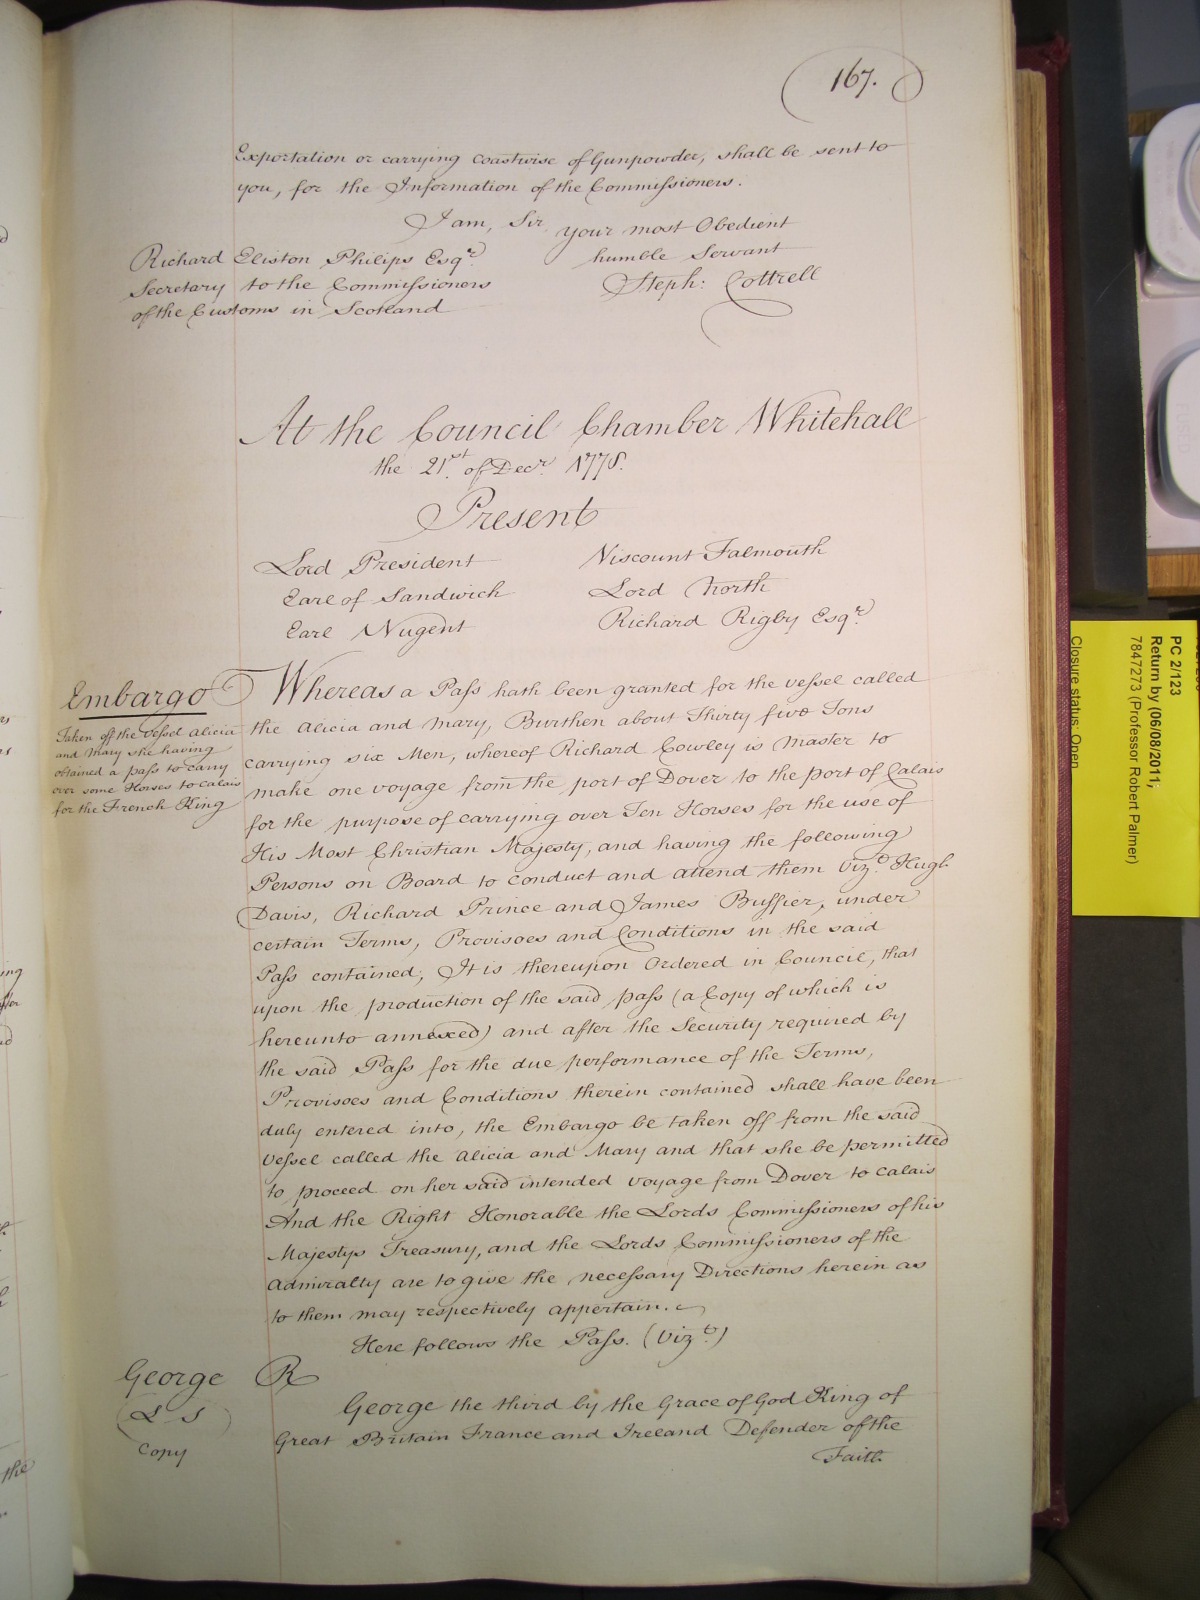 167.
Exportation or carrying Coastwise of Gunpowder, shall be sent to
you, for the Information of the Commissioners.
I am, Sir
your most Obedient
humble Servant
Steph: Cottrell
Richard Eliston Philips Esqr.
Secretary to the Commissioners
of the Customs in Scotland
At the Council Chamber Whitehall
the 21st. of Decr. 1778.
Present
Lord President
Earl of Sandwich
Earl Nugent
Viscount Falmouth
Lord North
Richard Rigby Esqr.
Embargo
Taken off the Vessel Alicia
and Mary she having
obtained a pass to carry
over some Horses to Calais
for the French King
Whereas a Pass hath been granted for the Vessel called
the Alicia and Mary, Burthen about Thirty five Tons
carrying six Men, whereof Richard Cowley is Master to
make one voyage from the port of Dover to the port of Calais
for the purpose of carrying over Ten Horses for the use of
His Most Christian Majesty, and having the following
Persons on Board to conduct and attend them Vizt. Hugh
Davis, Richard Prince and James Bussier, under
certain Terms, Provisoes and Conditions in the said
Pass contained; It is thereupon Ordered in Council, that
upon the production of the said pass (a Copy of which is
hereunto annexed) and after the Security required by
the said Pass for the due performance of the Terms,
Provisoes and Conditions therein contained shall have been
duly entered into, the Embargo be taken off from the said
Vessel called the Alicia and Mary and that she be permitted
to proceed on her said intended voyage from Dover to Calais
And the Right Honorable the Lords Commissioners of his
Majestys Treasury, and the Lords Commissioners of the
Admiralty are to give the necessary Directions herein as
to them may respectively appertain.
Here follows the Pass. (Vizt.)
George R
(L S)
Copy
George the third by the Grace of God King of
Great Britain France and Ireland Defender of the
Faith
PC 2/123
Return by (06/08/2011;
7847273 (Professor Robert Palmer)
Closure status Open